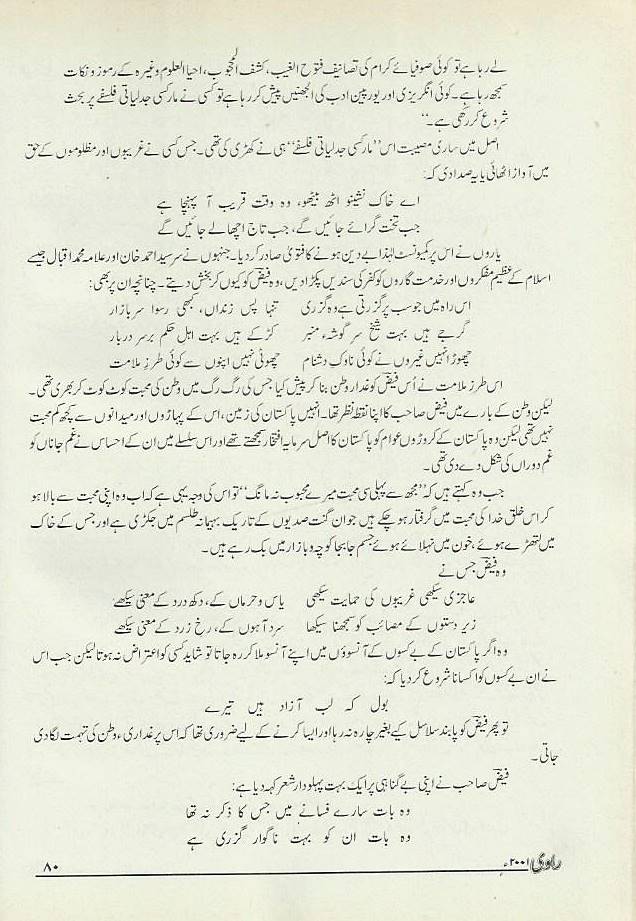 لے رہا ہے تو کوئی صوفیائے کرام کی تصانیف فتوح الغیب، کشف المحجوب، احیا العلوم وغیرہ کے رموز و نکات
سمجھ رہا ہے۔ کوئی انگریزی اور یورپین ادب کی الجھنیں پیش کر رہا ہے تو کسی نے مارکسی جدلیاتی فلسفے پر بحث
شروع کر رکھی ہے۔"
اصل میں ساری مصیبت اس "مارکسی جدلیاتی فلسفے" ہی نے کھڑی کی تھی۔ جس کسی نے غریبوں اور مظلوموں کے حق
میں آواز اٹھائی یا یہ صدا دی کہ:
اے خاک نشینو اٹھ بیٹھو، وہ وقت قریب آ پہنچا ہے
جب تخت گرائے جائیں گے، جب تاج اچھالے جائیں گے
یاروں نے اس پر کمیونسٹ لہٰذا بے دین ہونے کا فتویٰ صادر کر دیا۔ جنہوں نے سر سید احمد خان اور علامہ محمد اقبال جیسے
اسلام کے عظیم مفکروں اور خدمت گاروں کو کفر کی سندیں پکڑا دیں، وہ فیضؔ کو کیوں کر بخش دیتے۔ چنانچہ ان پر بھی:
اس راہ میں جو سب پر گزرتی ہے وہ گزری تنہا پس زنداں، کبھی رسوا سر بازار
گرجے ہیں بہت شیخ سر گوشہء منبر کڑکے ہیں بہت اہل حکم برسر دربار
چھوڑا نہیں غیروں نے کوئی ناوک دشنام چھوٹی نہیں اپنوں سے کوئی طرز ملامت
اس طرز ملامت نے اُس فیضؔ کو غدار وطن بنا کر پیش کیا جس کی رگ رگ میں وطن کی محبت کوٹ کوٹ کر بھری تھی۔
لیکن وطن کے بارے میں فیض صاحب کا اپنا نقطہ نظر تھا۔ انہیں پاکستان کی زمین، اس کے پہاڑوں اور میدانوں سے کچھ کم محبت
نہیں تھی لیکن وہ پاکستان کے کروڑوں عوام کو پاکستان کا اصل سرمایہ افتخار سمجھتے تھے اور اس سلسلے میں ان کے احساس نے غم جاناں کو
غم دوراں کی شکل دے دی تھی۔
جب وہ کہتے ہیں کہ "مجھ سے پہلی سی محبت میرے محبوب نہ مانگ" تو اس کی وجہ یہی ہے کہ اب وہ اپنی محبت سے بالا ہو
کر اس خلق خدا کی محبت میں گرفتار ہو چکے ہیں جو ان گنت صدیوں کے تاریک بہیمانہ طلسم میں جکڑی ہے اور جس کے خاک
میں لتھڑے ہوئے، خون میں نہلائے ہوئے جسم جا بجا کوچہ و بازار میں بک رہے ہیں۔
وہ فیضؔ جس نے
عاجزی سیکھی غریبوں کی حمایت سیکھی یاس و حرماں کے، دکھ درد کے معنی سیکھے
زیر دستوں کے مصائب کو سمجھنا سیکھا سرد آہوں کے، رخ زرد کے معنی سیکھے
وہ اگر پاکستان کے بے کسوں کے آنسوؤں میں اپنے آنسو ملا کر رہ جاتا تو شاید کسی کو اعتراض نہ ہوتا لیکن جب اس
نے ان بے کسوں کو اکسانا شروع کر دیا کہ:
بول کہ لب آزاد ہیں تیرے
تو پھر فیضؔ کو پابند سلاسل کیے بغیر چارہ نہ رہا اور ایسا کرنے کے لیے ضروری تھا کہ اس پر غداریء وطن کی تہمت لگا دی
جاتی۔
فیضؔ صاحب نے اپنی بے گناہی پر ایک بہت پہلو دار شعر کہہ دیا ہے:
وہ بات سارے فسانے میں جس کا ذکر نہ تھا
وہ بات ان کو بہت ناگوار گزری ہے
راوی ۲۰۰۱ء ۸۰